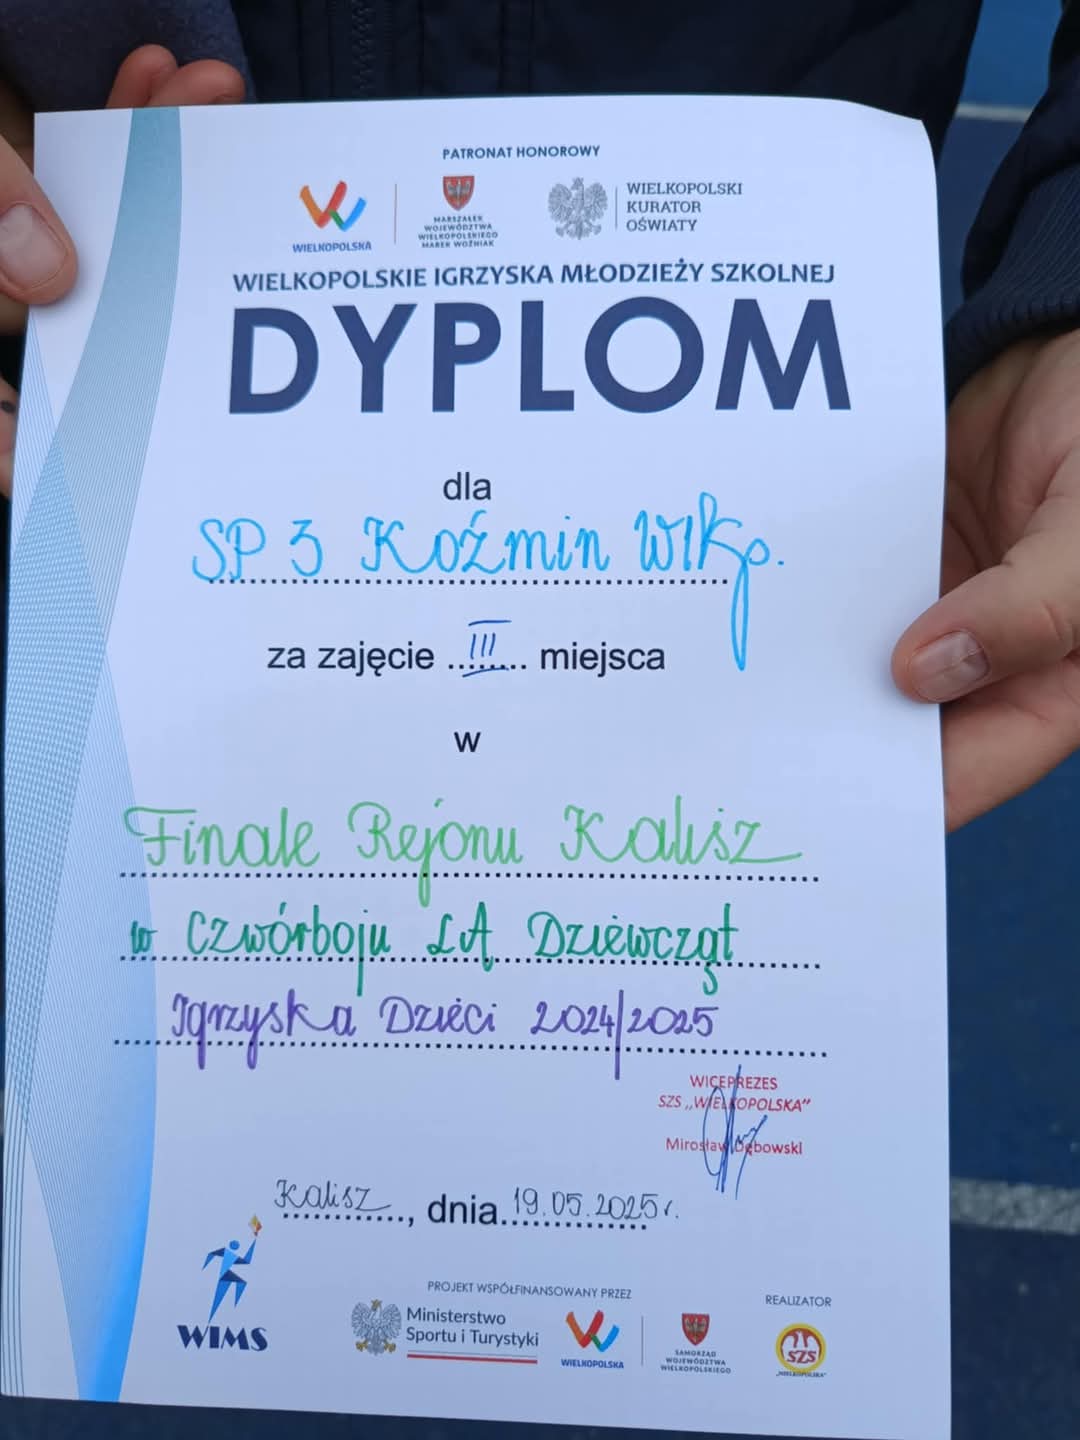 PATRONAT HONOROWY
WIELKOPOLSKA
MARSZAŁEK
WOJEWÓDZTWA
WIELKOPOLSKIEGO
MAREK WOŹNIAK
WIELKOPOLSKI
KURATOR
OŚWIATY
WIELKOPOLSKIE IGRZYSKA MŁODZIEŻY SZKOLNEJ
DYPLOM
dla
SP 3 Koźmin Wlkp.
za zajęcie III miejsca
w
Finale Rejonu Kalisz
w Czwórboju LA Dziewcząt
Igrzyska Dzieci 2024/2025
WICEPREZES
SZS „WIELKOPOLSKA”
Mirosław Dębowski
Kalisz, dnia 19.05.2025 r.
WIMS
PROJEKT WSPÓŁFINANSOWANY PRZEZ
Ministerstwo
Sportu i Turystyki
WIELKOPOLSKA
SAMORZĄD
WOJEWÓDZTWA
WIELKOPOLSKIEGO
REALIZATOR
SZS
„WIELKOPOLSKA”